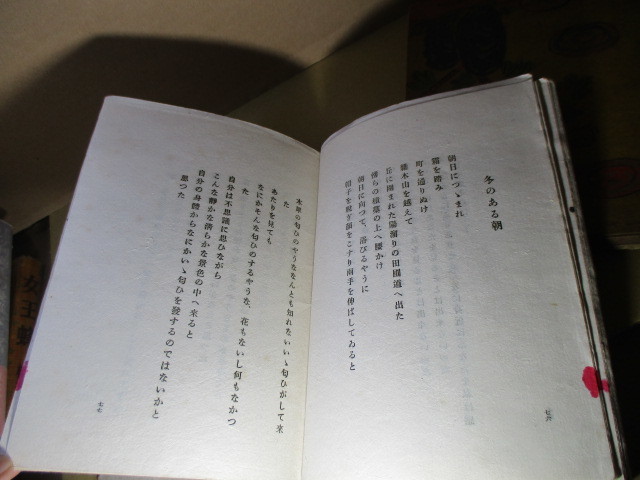 冬のある朝
朝日につゝまれ
霜を踏み
町を通りぬけ
雑木山を越えて
丘に圍まれた陽溜りの田圃道へ出た
積みの上へ腰かけ
朝日に向つて、浴びるやうに
帽子を脱ぎ顔をこすり両手を伸ばしてゐると
七六
木犀の匂ひのやうななんとも知れないいゝ匂ひがして來
た
あたりを見ても
なにかそんな匂ひのするやうな、花もないし何もなかつ
た
自分は不思議に思ひながら
こんな静かな清らかな景色の中へ來ると
自分の身體からなにかいゝ匂ひを發するのではないかと
思つた
七七
女王